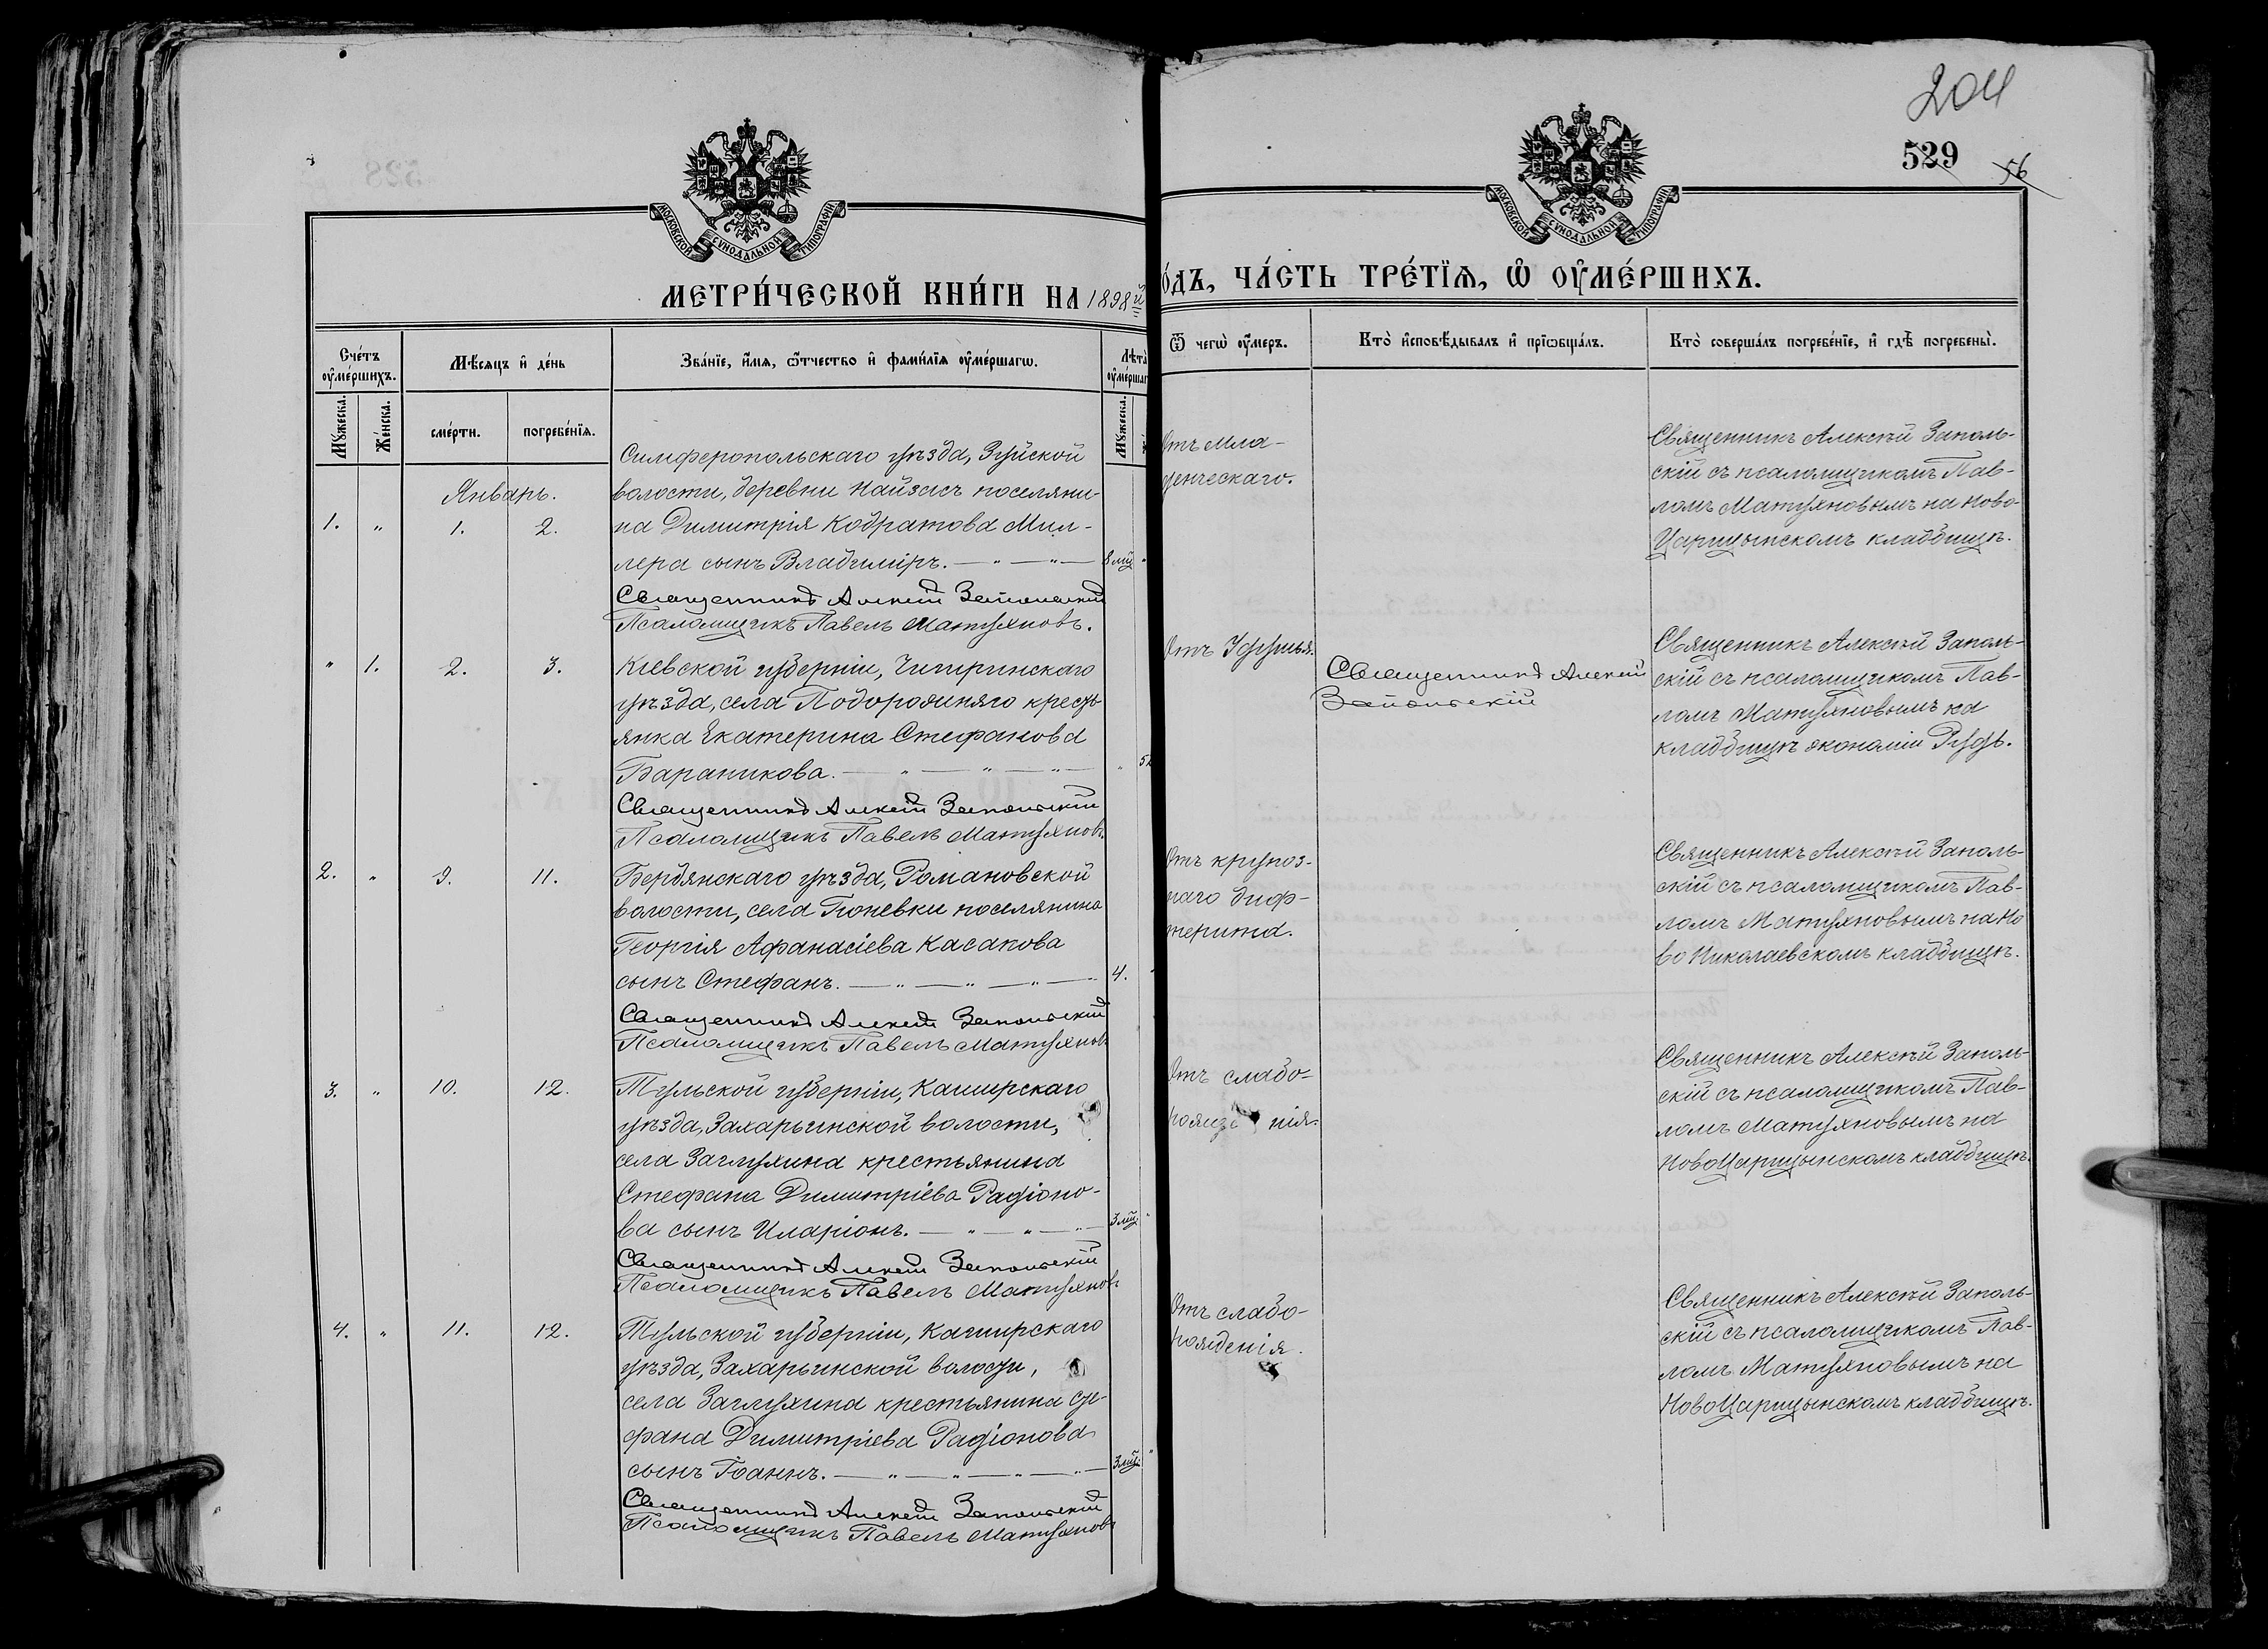 204
529
56
МОСКОВСКОЙ СѴНОДАЛЬНОЙ ТИПОГРАФІИ
МОСКОВСКОЙ СѴНОДАЛЬНОЙ ТИПОГРАФІИ
МЕТРИ́ЧЕСКОЙ КНИ́ГИ НА 1898й
О́ДЪ, ЧА́СТЬ ТРЕ́ТІѦ, Ѡ҆ ОУ҆МЕ́РШИХЪ.
Сче́тъ оу҆ме́ршихъ.
Мѣ́сяцъ и҆ де́нь
Зва́нїе, и҆́мѧ, ѻ҆́тчество и҆ фами́лїѧ оу҆ме́ршагѡ.
Лѣ́та
оу҆ме́ршаг
Ѿ чегѡ̀ оу҆́меръ.
Кто̀ и҆сповѣ́дывалъ и҆ прїѡбща́лъ.
Кто̀ соверша́лъ погребе́нїе, и҆ гдѣ̀ погребены̀.
Мꙋ́жеска.
Же́нска.
сме́рти.
погребе́нїѧ.
Мꙋ́жеска.
Январь.
1. " 1. 2.
Симферопольскаго уѣзда, Зуйской
волости, деревни Найзасъ поселяни-
на Димитрія Кодратова Мил-
лера сынъ Владиміръ. — " — " —
8 мц
Священникъ Алексій Запольскій
Псаломщикъ Павелъ Матухновъ.
Отъ мла-
денческаго.
Священникъ Алексѣй Заполь-
скій съ псаломщикомъ Пав-
ломъ Матухновымъ на Ново-
Царицынскомъ кладбищѣ.
" 1. 2. 3.
Кіевской губерніи, Чигиринскаго
уѣзда, села Подорожняго кресть
янка Екатерина Стефанова
Бараникова. — " — " — " —
" 5
Священникъ Алексій Запольскій
Псаломщикъ Павелъ Матухновъ.
Отъ Удушья.
Священникъ Алексій
Запольскій
Священникъ Алексѣй Заполь-
скій съ псаломщикомъ Пав-
ломъ Матухновымъ на
кладбищѣ экономіи Рудь.
2. " 9. 11.
Бердянскаго уѣзда, Романовской
волости, села Гюневки поселянина
Георгія Афанасіева Касапова
сынъ Стефанъ. — " — " — " —
4.
Священникъ Алексій Запольскій
Псаломщикъ Павелъ Матухновъ
Отъ крупоз-
наго диф-
терита.
Священникъ Алексѣй Заполь-
скій съ псаломщикомъ Пав-
ломъ Матухновымъ на Но
во Николаевскомъ кладбищѣ.
3. " 10. 12.
Тульской губерніи, Каширскаго
уѣзда, Захарьинской волости,
села Заглухина крестьянина
Стефана Димитріева Радіоно-
ва сынъ Иларіонъ. — " — " — " —
3 мц
Священникъ Алексій Запольскій
Псаломщикъ Павелъ Матухновъ
Отъ слабо-
рожде нія.
Священникъ Алексѣй Заполь-
скій съ псаломщикомъ Пав-
ломъ Матухновымъ на
НовоЦарицынскомъ кладбищѣ.
4. " 11. 12.
Тульской губерніи, Каширскаго
уѣзда, Захарьинской волости,
села Заглухина крестьянина Сте-
фана Димитріева Радіонова
сынъ Іоаннъ. — " — " — " — " —
3 мц
Священникъ Алексій Запольскій
Псаломщикъ Павелъ Матухновъ
Отъ слабо-
рожденія.
Священникъ Алексѣй Заполь-
скій съ псаломщикомъ Пав-
ломъ Матухновымъ на
НовоЦарицынскомъ кладбищѣ.